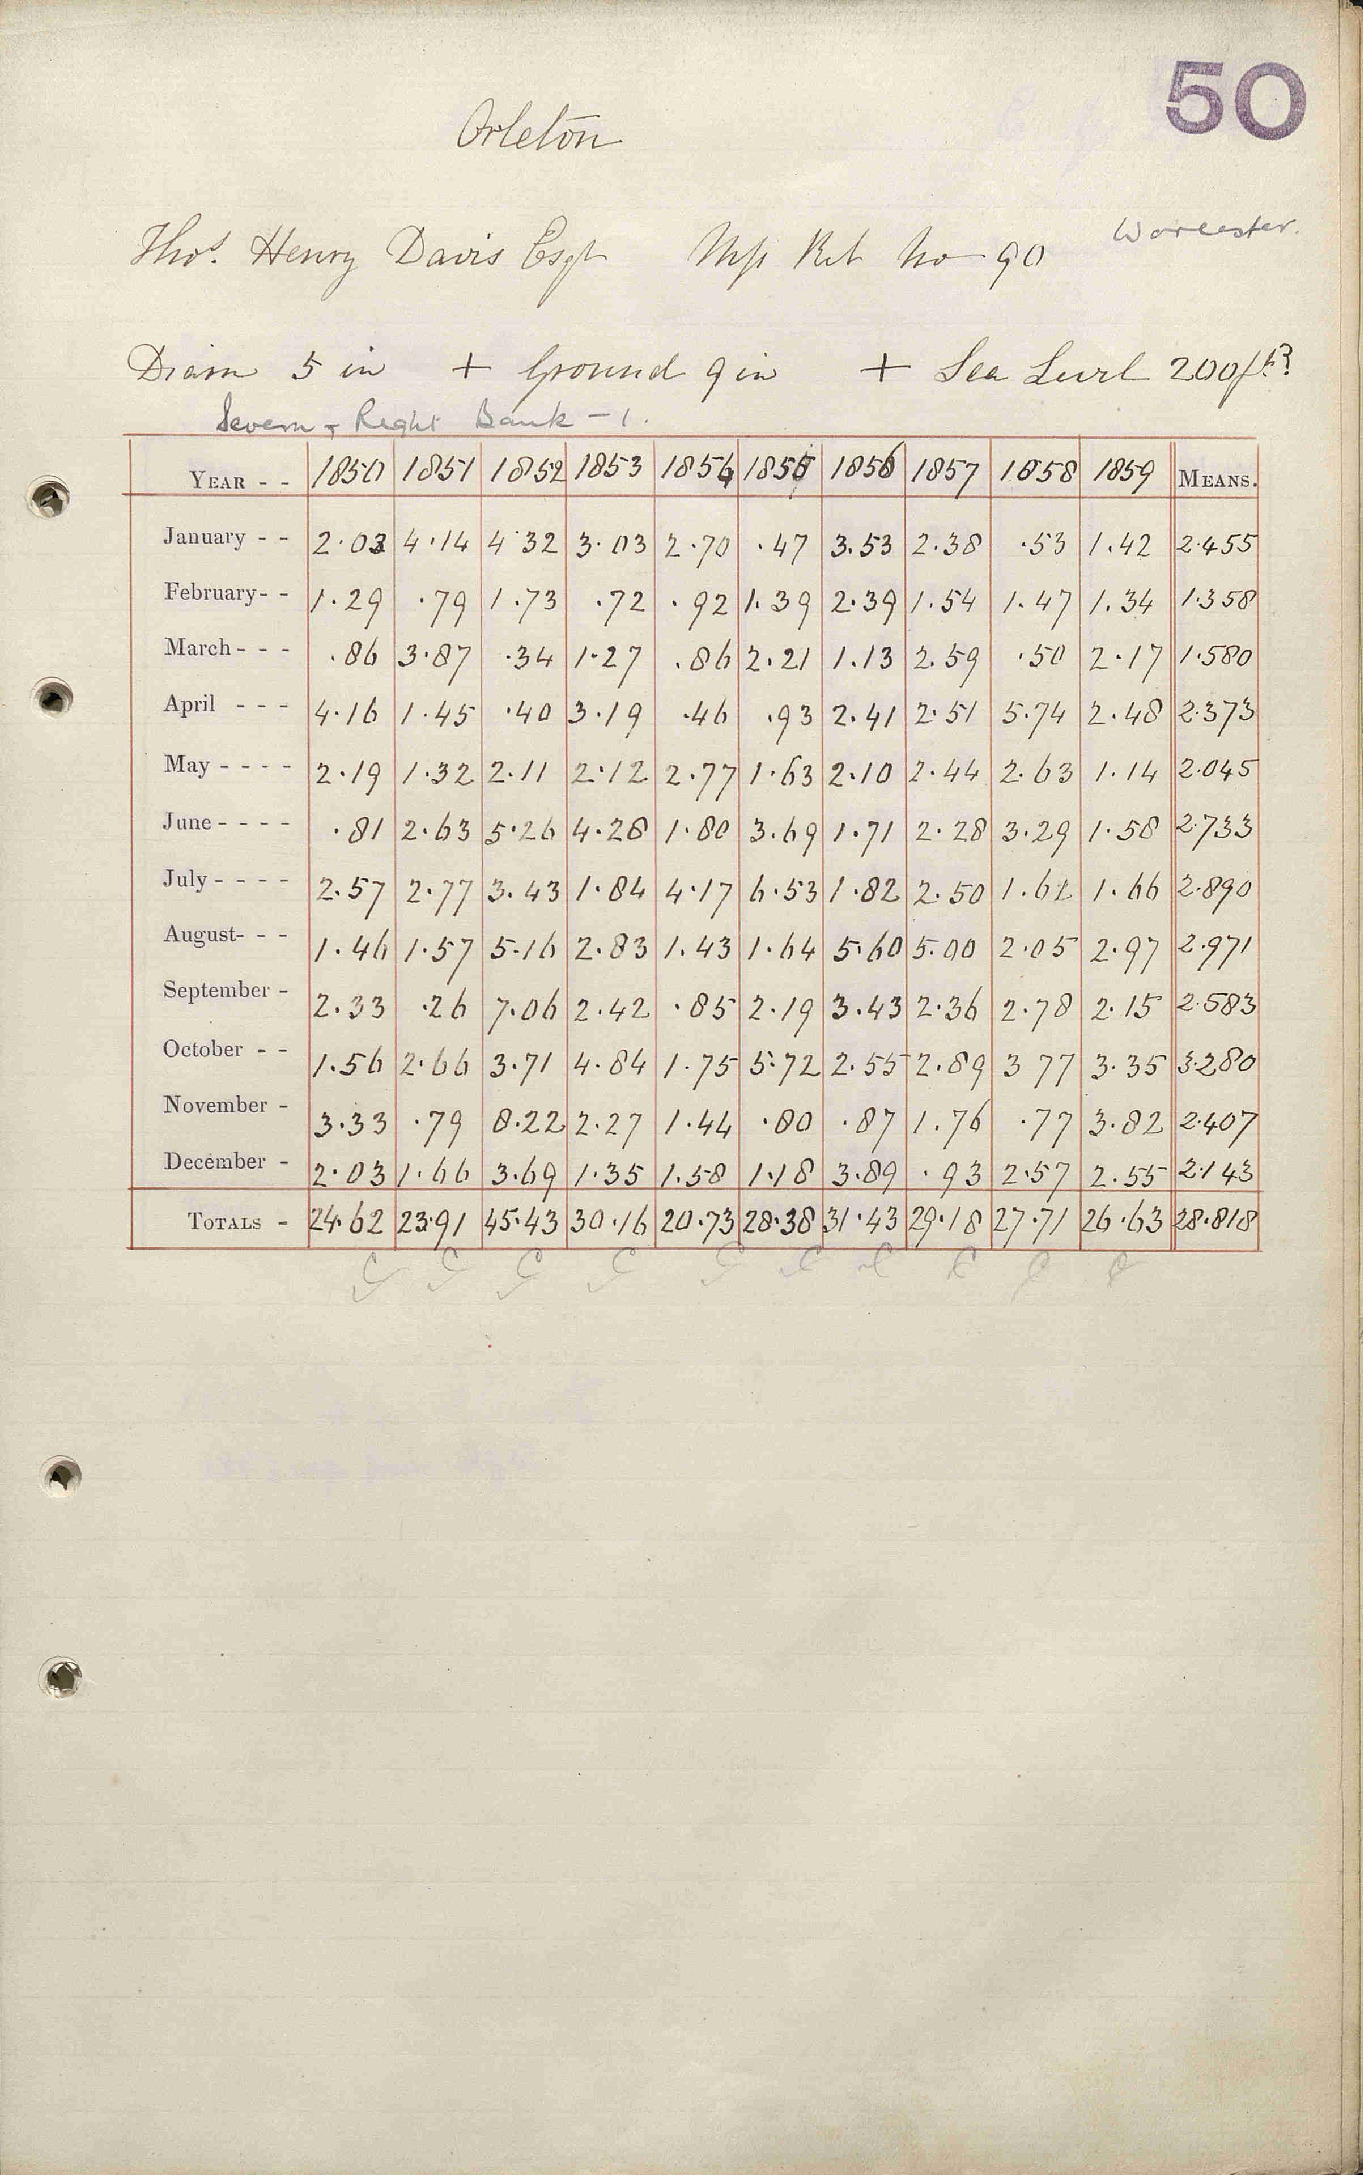 50
Orleton
Worcester.
Thos. Henry Davis Esqr Mss Ret No 90
Diam 5 in + Ground 9 in + Sea Level 200ft?
Severn + Right Bank - 1.
YEAR - - 1850 1851 1852 1853 1854 1855 1856 1857 1858 1859 MEANS.
January - - 2.03 4.14 4.32 3.03 2.70 .47 3.53 2.38 .53 1.42 2.455
February - - 1.29 .79 1.73 .72 .92 1.39 2.39 1.54 1.47 1.34 1.358
March - - - .86 3.87 .34 1.27 .86 2.21 1.13 2.59 .50 2.17 1.580
April - - - 4.16 1.45 .40 3.19 .46 .93 2.41 2.51 5.74 2.48 2.373
May - - - - 2.19 1.32 2.11 2.12 2.77 1.63 2.10 2.44 2.63 1.14 2.045
June - - - - .81 2.63 5.26 4.28 1.80 3.69 1.71 2.28 3.29 1.58 2.733
July - - - - 2.57 2.77 3.43 1.84 4.17 6.53 1.82 2.50 1.61 1.66 2.890
August - - - 1.46 1.57 5.16 2.83 1.43 1.64 5.60 5.00 2.05 2.97 2.971
September - 2.33 .26 7.06 2.42 .85 2.19 3.43 2.36 2.78 2.15 2.583
October - - 1.56 2.66 3.71 4.84 1.75 5.72 2.55 2.89 3 77 3.35 3.280
November - 3.33 .79 8.22 2.27 1.44 .80 .87 1.76 .77 3.82 2.407
December - 2.03 1.66 3.69 1.35 1.58 1.18 3.89 .93 2.57 2.55 2.143
TOTALS - 24.62 23.91 45.43 30.16 20.73 28.38 31.43 29.18 27.71 26.63 28.818